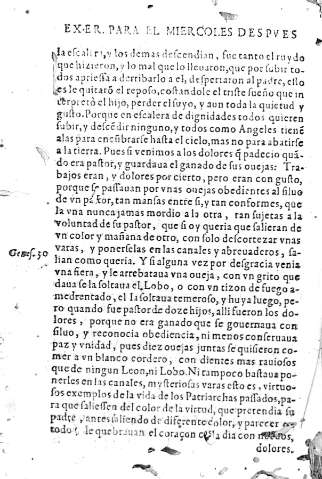 EXER. PARA EL MIERCOLES DESPVES
la escalera, y los demas descendian, fue tanto el ruydo
que hizieron, y lo mal que lo lleuaron, que por subir to-
dos apriessa a derribarlo a el, despertaron al padre, ello
es le quitarõ el reposo, costandole el triste sueño que in
terpretò el hijo, perder el suyo, y aun toda la quietud y
gusto. Porque en escalera de dignidades todos quieren
subir, y descẽdir ninguno, y todos como Angeles tienẽ
alas para encũbrarse hasta el cielo, mas no para abatirse
a la tierra. Pues si venimos a los dolores q̃ padecio quã-
do era pastor, y guardaua el ganado de sus ouejas: Tra-
bajos eran, y dolores por cierto, pero eran con gusto,
porque se passauan por vnas ouejas obedientes al siluo
de vn pastor, tan mansas entre si, y tan conformes, que
la vna nunca jamas mordio a la otra, tan sujetas a la
voluntad de su pastor, que si oy queria que salieran de
vn color y mañana de otro, con solo descortezar vnas
varas, y ponerselas en las canales y abreuaderos, sa-
Genes. 30
lian como queria. Y si alguna vez por desgracia venia
vna fiera, y le arrebataua vna oueja, con vn grito que
daua se la soltaua el Lobo, o con vn tizon de fuego a-
medrentado, el la soltaua temeroso, y huya luego, pe-
ro quando fue pastor de doze hijos, alli fueron los do-
lores, porque no era ganado que se gouernaua con
siluo, y reconocia obediencia, ni menos conseruaua
paz y vnidad, pues diez ouejas juntas se quisieron co-
mer a vn blanco cordero, con dientes mas rauiosos
que de ningun Leon, ni Lobo. Ni tampoco bastaua po-
nerles en las canales, mysteriosas varas esto es, virtuo-
sos exemplos de la vida de los Patriarchas passados, pa-
ra que saliessen del color de la virtud, que pretendia su
padre, antes saliendo de diferente color, y parecer
todo le quebrauan el coraçon cada dia con
dolores.